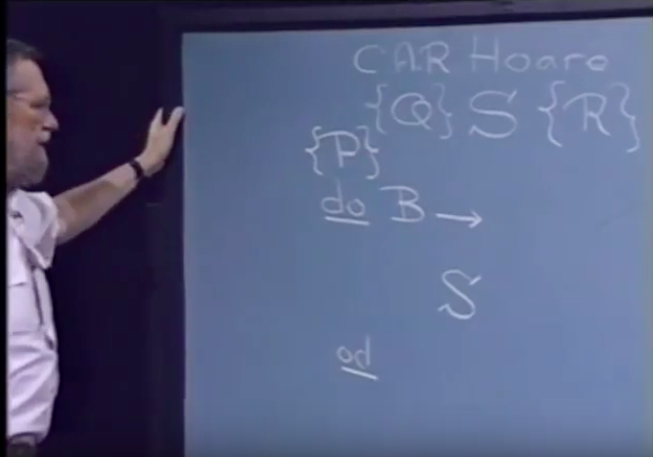 CAR Hoare
{Q} S {R}
{P}
do B →
S
od